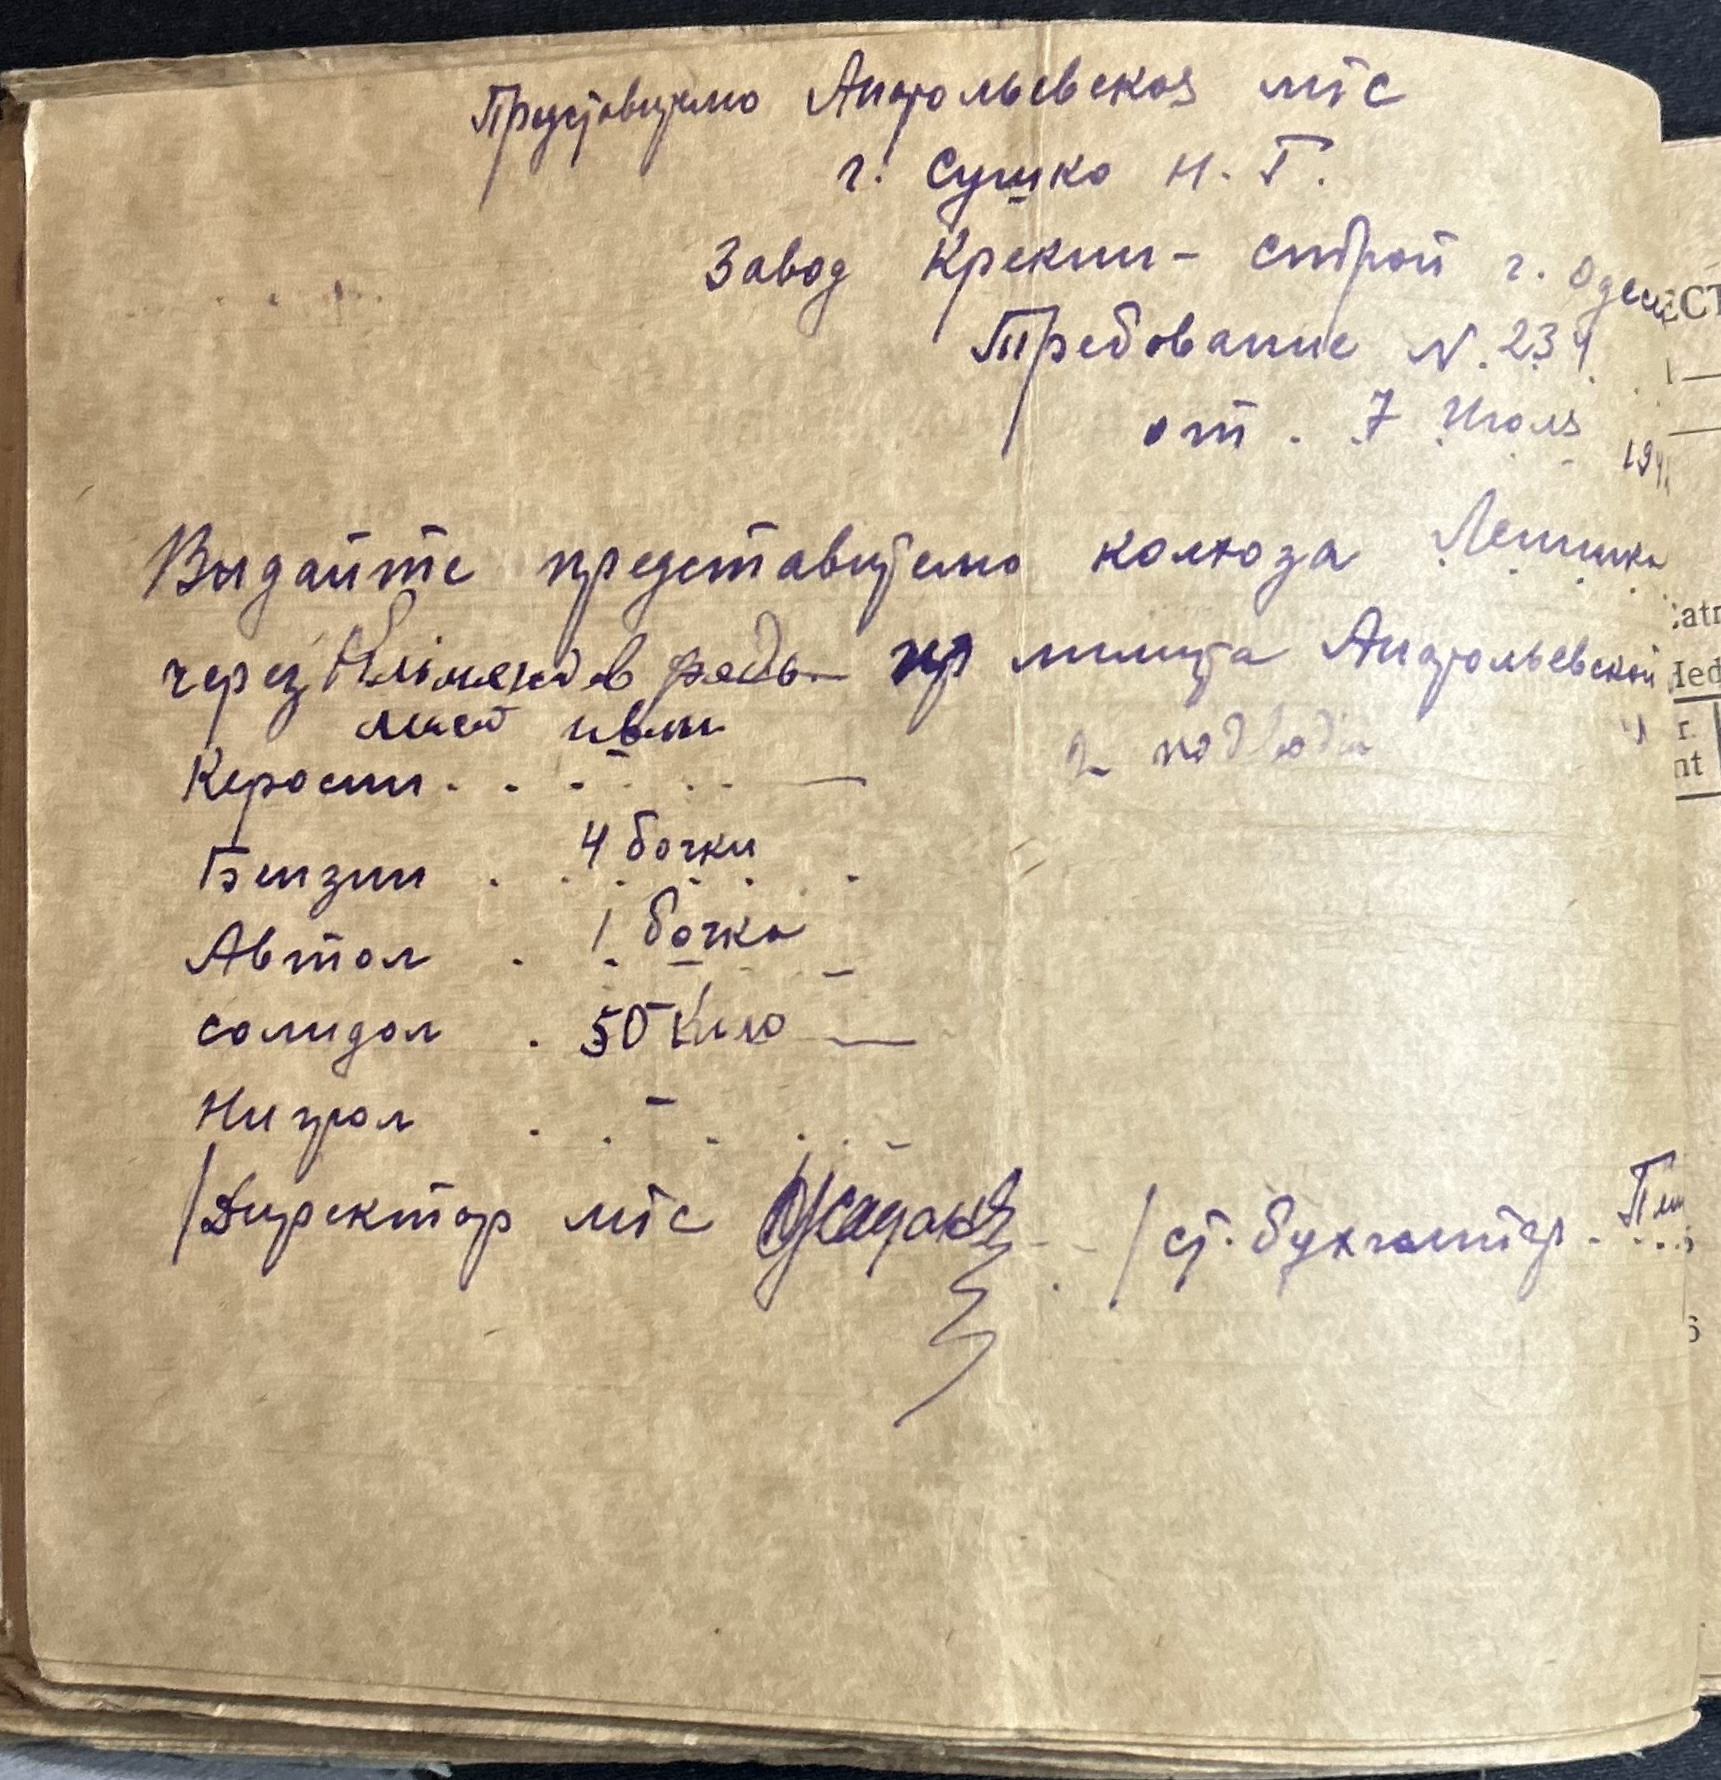 Представителю Анатольевская мтс
г. Сушко Н. Г.
Завод Крекин-строй г. Одесс
Требование N. 234
от . 7 Июля 194
Выдайте представителю колхоза Ленинка
через в лимита Анатольевской
Керосин
Бензин . 4 бочки
Автол . 1 бочка
Солидол . 50 Кило —
Нигрол . –
/Директор мтс / ст. бухгалтер.